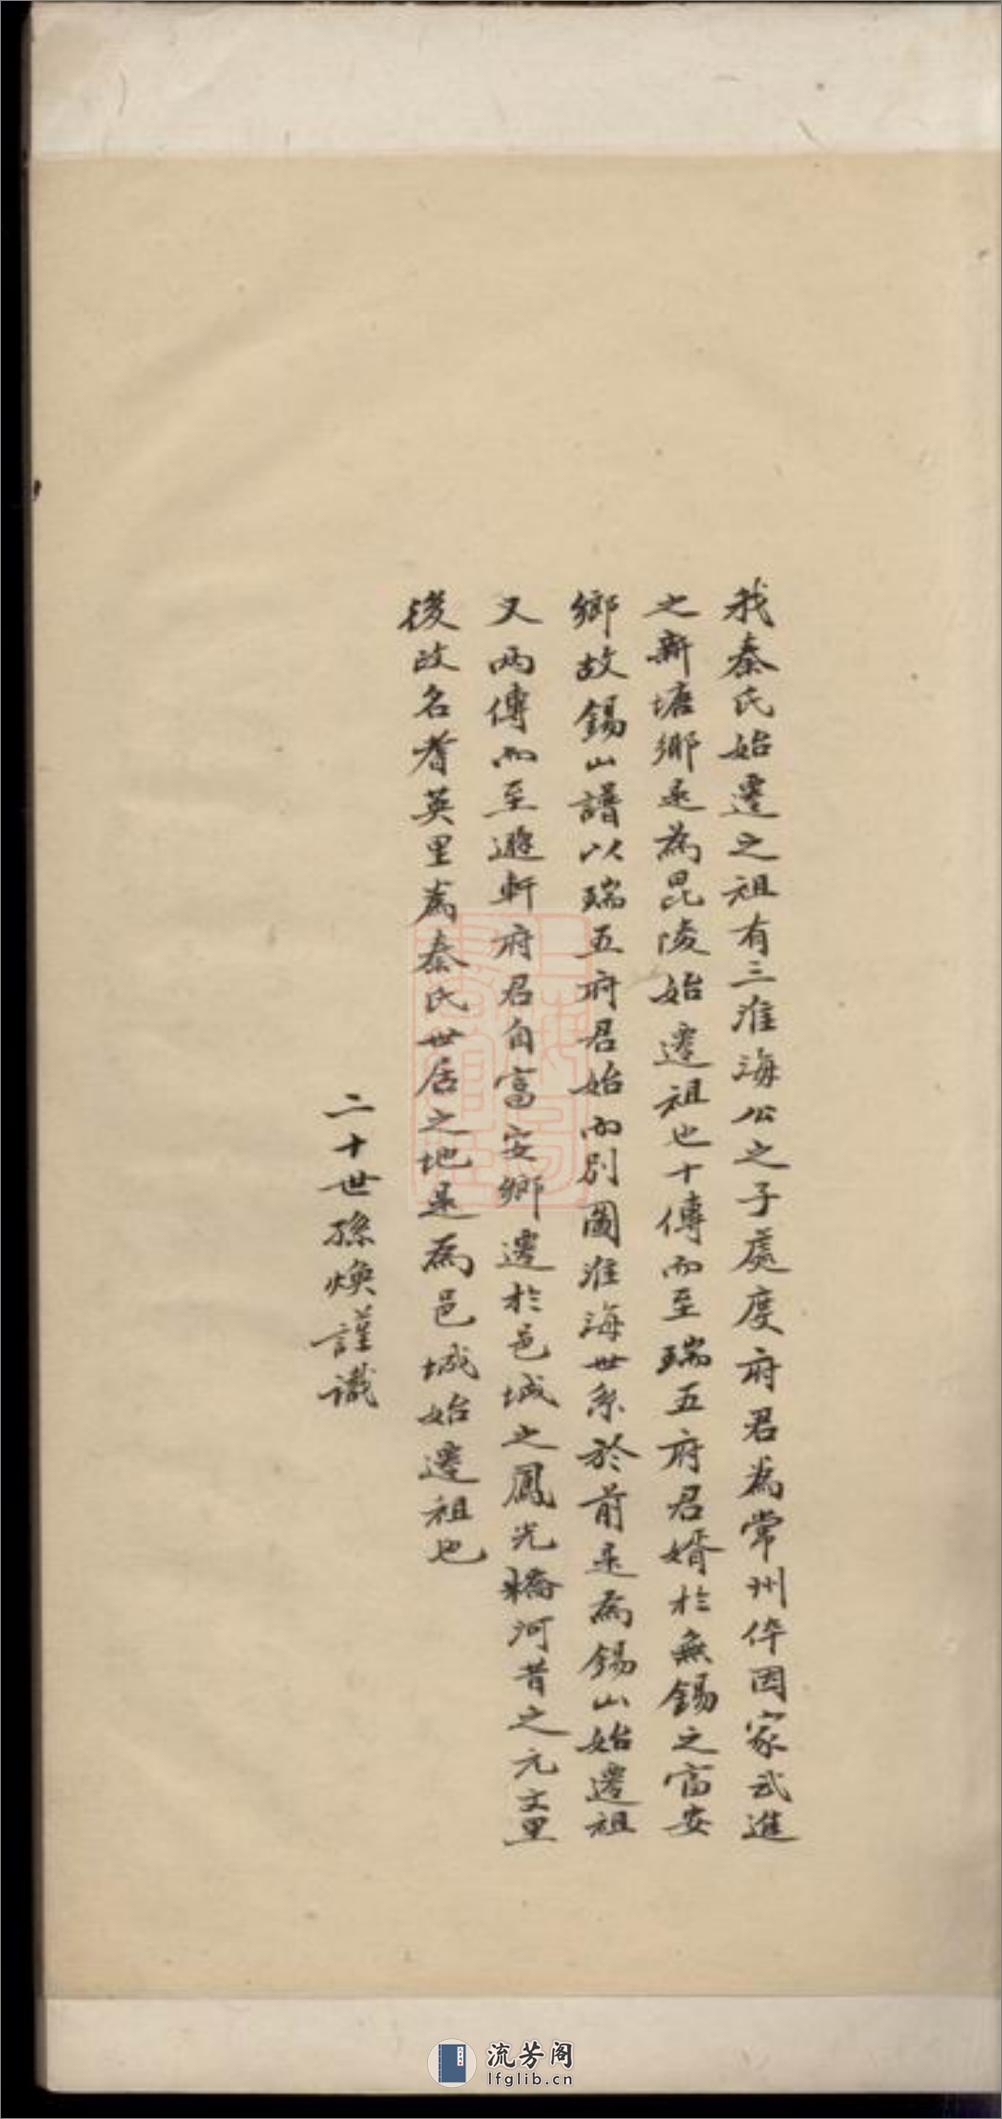 我秦氏始遷之祖有三淮海公之子處度府君為常州倅因家武進
之新塘鄉是為毘陵始遷祖也十傳而至瑞五府君婿於無錫之富安
鄉故錫山譜以瑞五府君始而別圖淮海世系於前是為錫山始遷祖
又兩傳而至避軒府君自富安鄉遷於邑城之鳳光橋河昔之元文里
後改名耆英里為秦氏世居之地是為邑城始遷祖也
二十世孫煥謹識
流芳阁
lfglib.cn